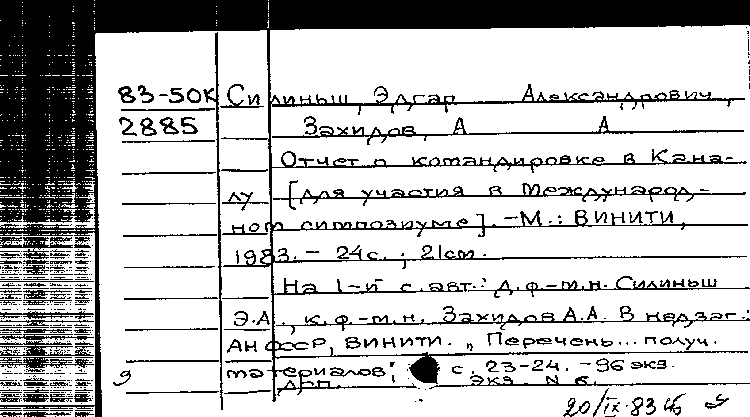 83-50К Силиньш, Эдгар Александрович,
2885 Захидов, А А
Отчет о командировке в Кана-
ду [для участия в Международ-
ном симпозиуме]. -М.: ВИНИТИ,
1983. - 24с. ; 21см.
На 1-й с. авт.: д.ф.-м.н. Силиньш
Э.А., к.ф.-м.н. Захидов А.А. В надзаг.:
АН СССР, ВИНИТИ. „Перечень... получ.
материалов: с. 23-24. - 96 экз.
9 ДСП. Экз. N 6.
20/IX-83